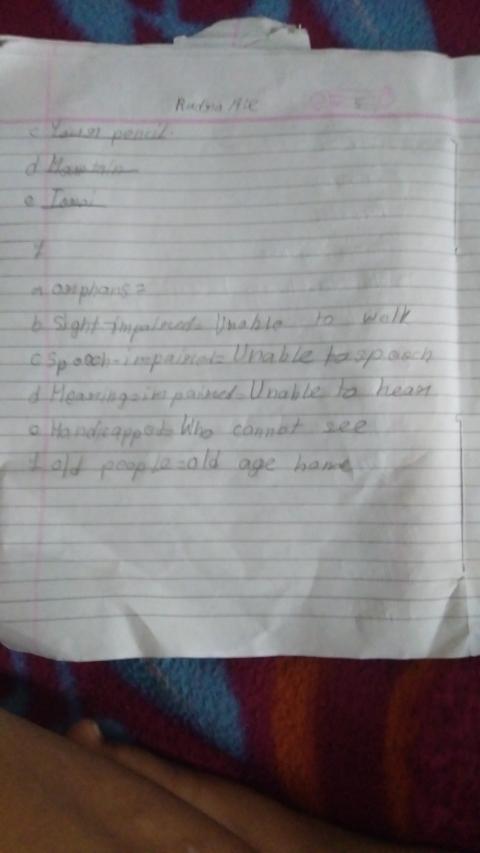 c pencil.
d
e
a orphans =
b Sight-impaired = Unable to walk
c Speech-impaired = Unable to speech
d Hearing = impaired = Unable to hear
e Handicapped = Who cannot see
f old people = old age home